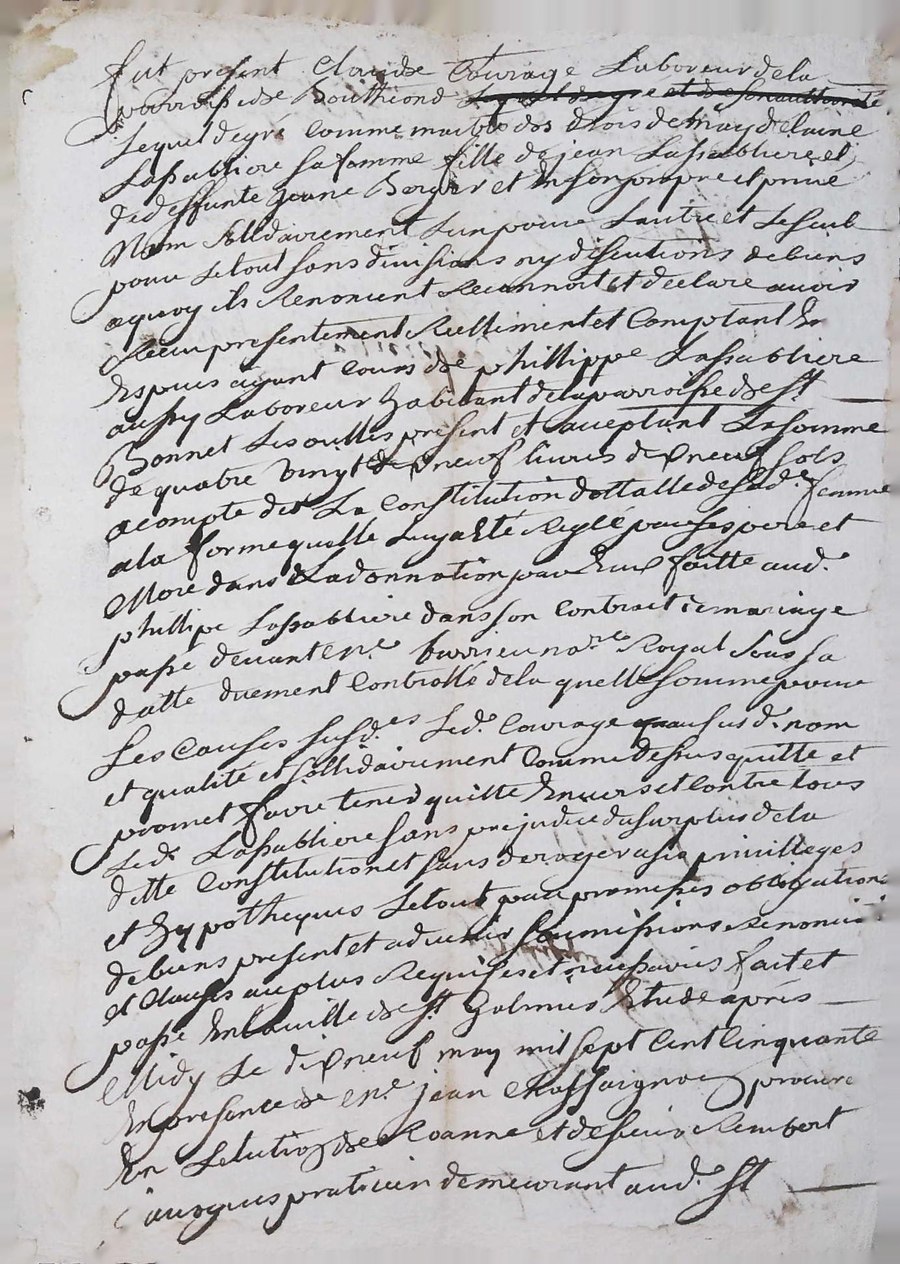 fut present Claude Courage Laboreur de la
parroisse de Bouthéond Lequel de gré et de son authorité
Lequel de gré comme maitre des drois de may delaine
Lassabliere sa famme fille de jean Lassabliere et
de deffunte jeane Borgier et en son propre et privé
Nom sollidairement Lun pour Lautre et Le seul
pour Le tout sans divisions ny discutions de biens
a quoy ils Renoncent Reconnoit et declare avoir
Receu presentement Réellement et Comptant En
Espuis ayant Cours de phillippe Lassabliere
aussy Laboreur habitant de la parroisse de St
Bonnet Les oulles present et aceptant La somme
de quatre vingt dixneuf livres dixneuf sols
acompte de La Constitution dottalle de sad.e femme
a la forme quelle Luy a Eté Reglé par ses pere et
Mere dans La donnation par Eux faitte aud.
phillipe Lassabliere dans son Contract de mariage
passé devant me. no.re Royal sous sa
datte duement Controllé de la quelle somme pour
Les Causes susd.es Led. Courage aususd. nom
et qualité et sollidairement Comme dessus quitte et
promet faire tenir quitte Envers et Contre tous
Led. Lassabliere sans prejudice du surplus de la
ditte Constitution et sans deroger a ses privilleges
et hypotheques Le tout par promesses obligations
de biens present et advenir soumissions Renonci
et Clauses au plus Requises et necessaires fait et
passé En la ville de St Galmier Etude aprés
Midy Le dixneuf may mil sept Cent Cinquante
En presence de me. jean Chassaignon procure
En Lelution de Roanne et de sieur Rembert
praticien demeurant aud. St